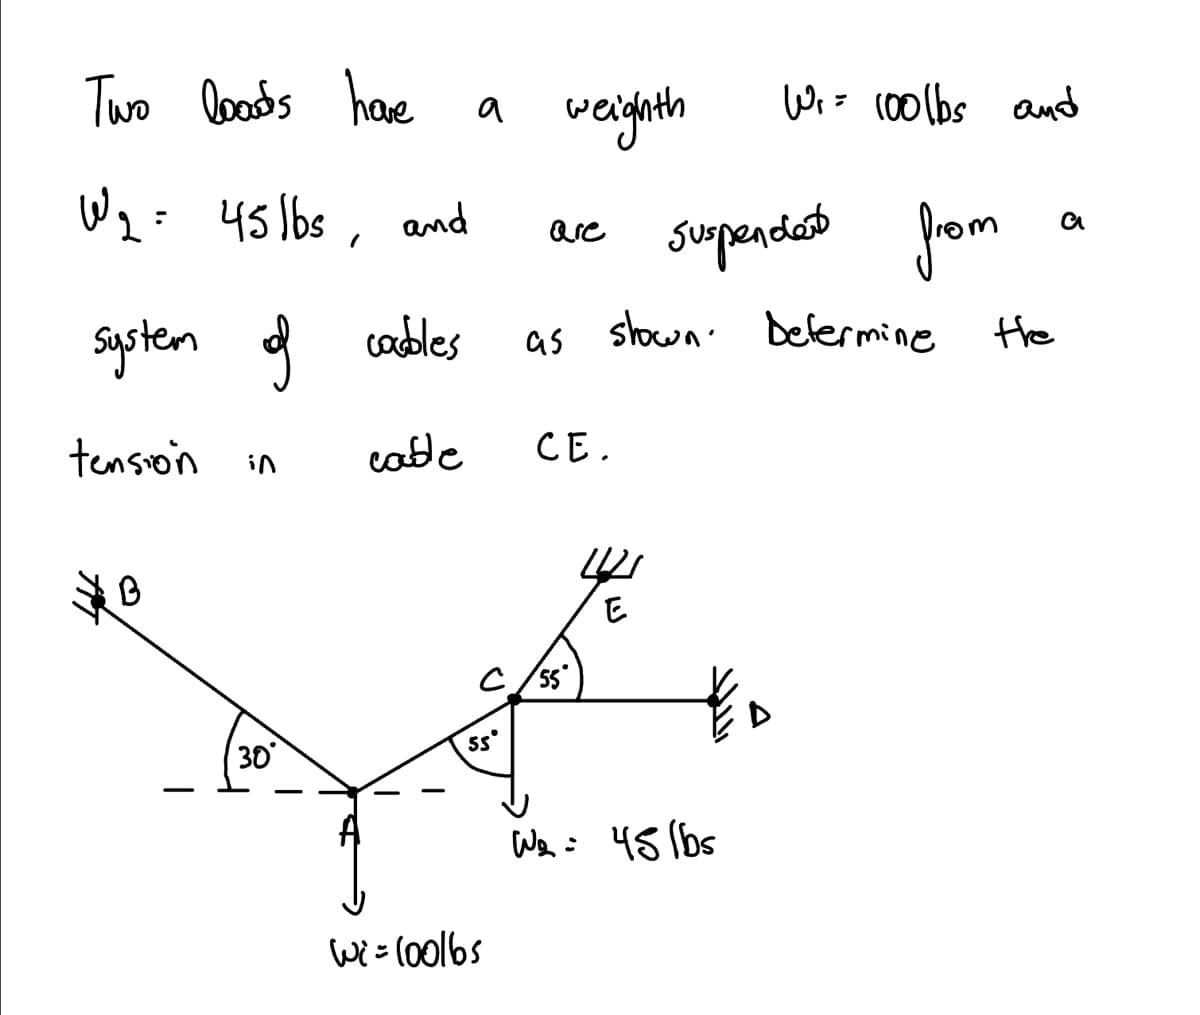 Two loads have a weighth W₁ = 100lbs and
W₂ = 45 lbs, and are suspended from a
system of cables as shown. Determine the
tension in cable CE.
B
E
C 55°
D
55°
30°
A
W₂ = 45 lbs
W₁ = 100lbs